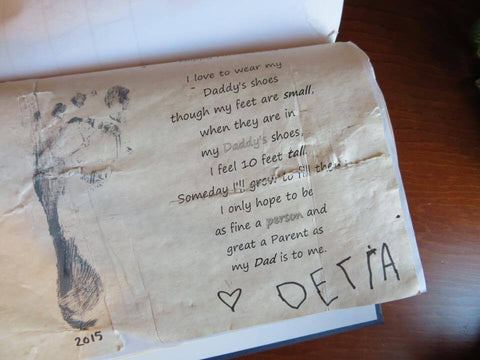 I love to wear my
Daddy's shoes
though my feet are small,
when they are in
my Daddy's shoes,
I feel 10 feet tall.
Someday I'll grow to fill them
I only hope to be
as fine a person and
great a Parent as
my Dad is to me.
2015